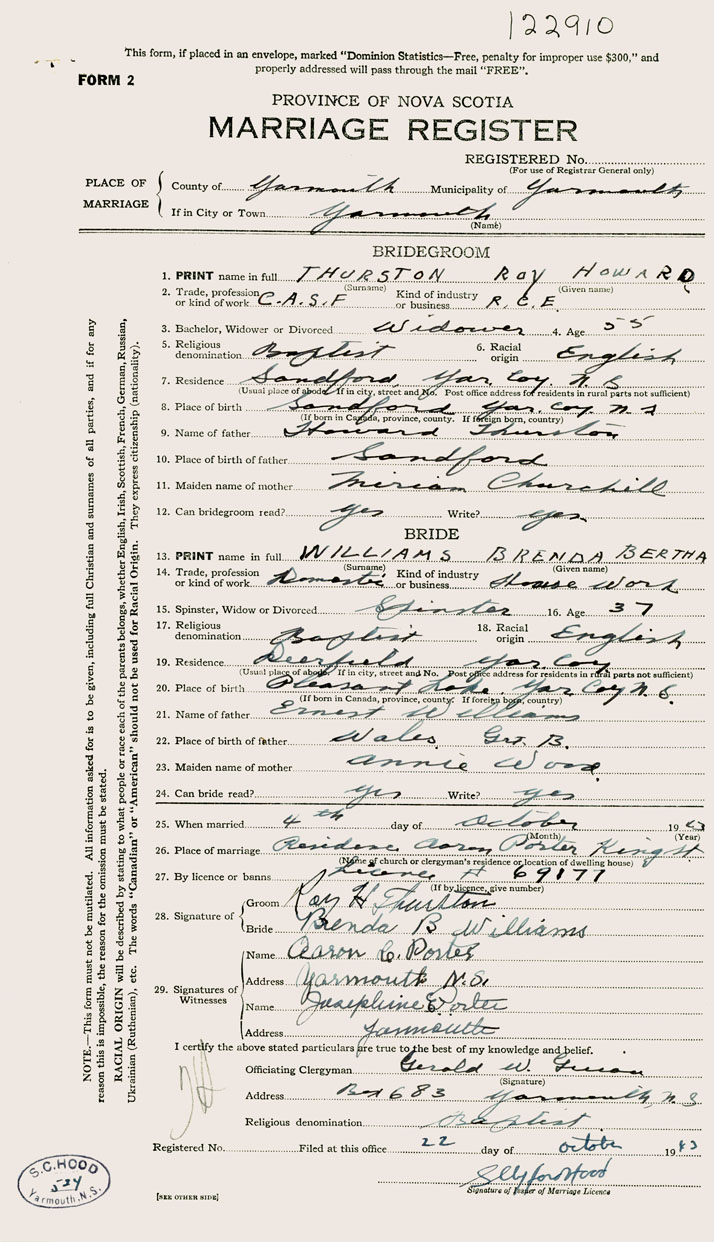 122910
This form, if placed in an envelope, marked "Dominion Statistics—Free, penalty for improper use $300," and
properly addressed will pass through the mail "FREE".
FORM 2
PROVINCE OF NOVA SCOTIA
MARRIAGE REGISTER
REGISTERED No.
(For use of Registrar General only)
PLACE OF MARRIAGE
County of Yarmouth Municipality of Yarmouth
If in City or Town Yarmouth
(Name)
BRIDEGROOM
1. PRINT name in full THURSTON ROY HOWARD
(Surname) (Given name)
2. Trade, profession or kind of work C.A.S.F Kind of industry or business R.C.E.
3. Bachelor, Widower or Divorced Widower 4. Age 55
5. Religious denomination Baptist 6. Racial origin English
7. Residence Sandford, Yar. Coy. N.S
(Usual place of abode. If in city, street and No. Post office address for residents in rural parts not sufficient)
8. Place of birth Sandford Yar. Coy. N.S
(If born in Canada, province, county. If foreign born, country)
9. Name of father Howard Thurston
10. Place of birth of father Sandford
11. Maiden name of mother Miriam Churchill
12. Can bridegroom read? yes Write? yes
BRIDE
13. PRINT name in full WILLIAMS BRENDA BERTHA
(Surname) (Given name)
14. Trade, profession or kind of work Domestic Kind of industry or business House Work
15. Spinster, Widow or Divorced Spinster 16. Age 37
17. Religious denomination Baptist 18. Racial origin English
19. Residence Deerfield Yar. Coy
(Usual place of abode. If in city, street and No. Post office address for residents in rural parts not sufficient)
20. Place of birth Pleasant Lake. Yar Coy N.S.
(If born in Canada, province, county. If foreign born, country)
21. Name of father Ernest Williams
22. Place of birth of father Wales Grt. B.
23. Maiden name of mother Annie Wood
24. Can bride read? yes Write? yes
25. When married 4th day of October 1943
(Month) (Year)
26. Place of marriage Residence Aaron Porter King st
(Name of church or clergyman's residence or location of dwelling house)
27. By licence or banns Licence # 69177
(If by licence, give number)
28. Signature of
Groom Roy H Thurston
Bride Brenda B Williams
29. Signatures of Witnesses
Name Aaron C. Porter
Address Yarmouth N.S.
Name Josephine E Porter
Address Yarmouth
I certify the above stated particulars are true to the best of my knowledge and belief.
Officiating Clergyman Gerald W.
(Signature)
Address Box 683 Yarmouth, N.S
Religious denomination Baptist
Registered No. Filed at this office 22 day of October 1943
Signature of Issuer of Marriage Licence
[SEE OTHER SIDE]
S.C. HOOD
534
Yarmouth, N.S.
NOTE.—This form must not be mutilated. All information asked for is to be given, including full Christian and surnames of all parties, and if for any
reason this is impossible, the reason for the omission must be stated.
RACIAL ORIGIN will be described by stating to what people or race each of the parents belongs, whether English, Irish, Scottish, French, German, Russian,
Ukrainian (Ruthenian), etc. The words "Canadian" or "American" should not be used for Racial Origin. They express citizenship (nationality).